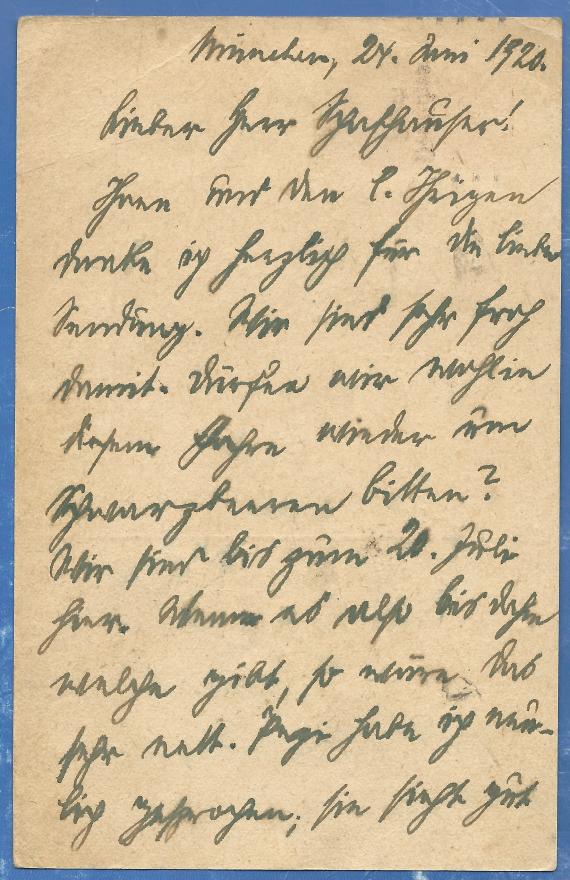 München, 24. Juni 1920.
Lieber Herr Schafhauser!
Ihnen und den l. Ihrigen
danke ich herzlich für die liebe
Sendung. Wir sind sehr froh
damit. Dürfen wir wohl in
diesem Jahre wieder um
Schwarzbeeren bitten?
Wir sind bis zum 20. Juli
hier. Wenn es also bis dahin
welche gibt, so wäre das
sehr nett. Pepi habe ich neu-
lich gesprochen; sie sieht gut